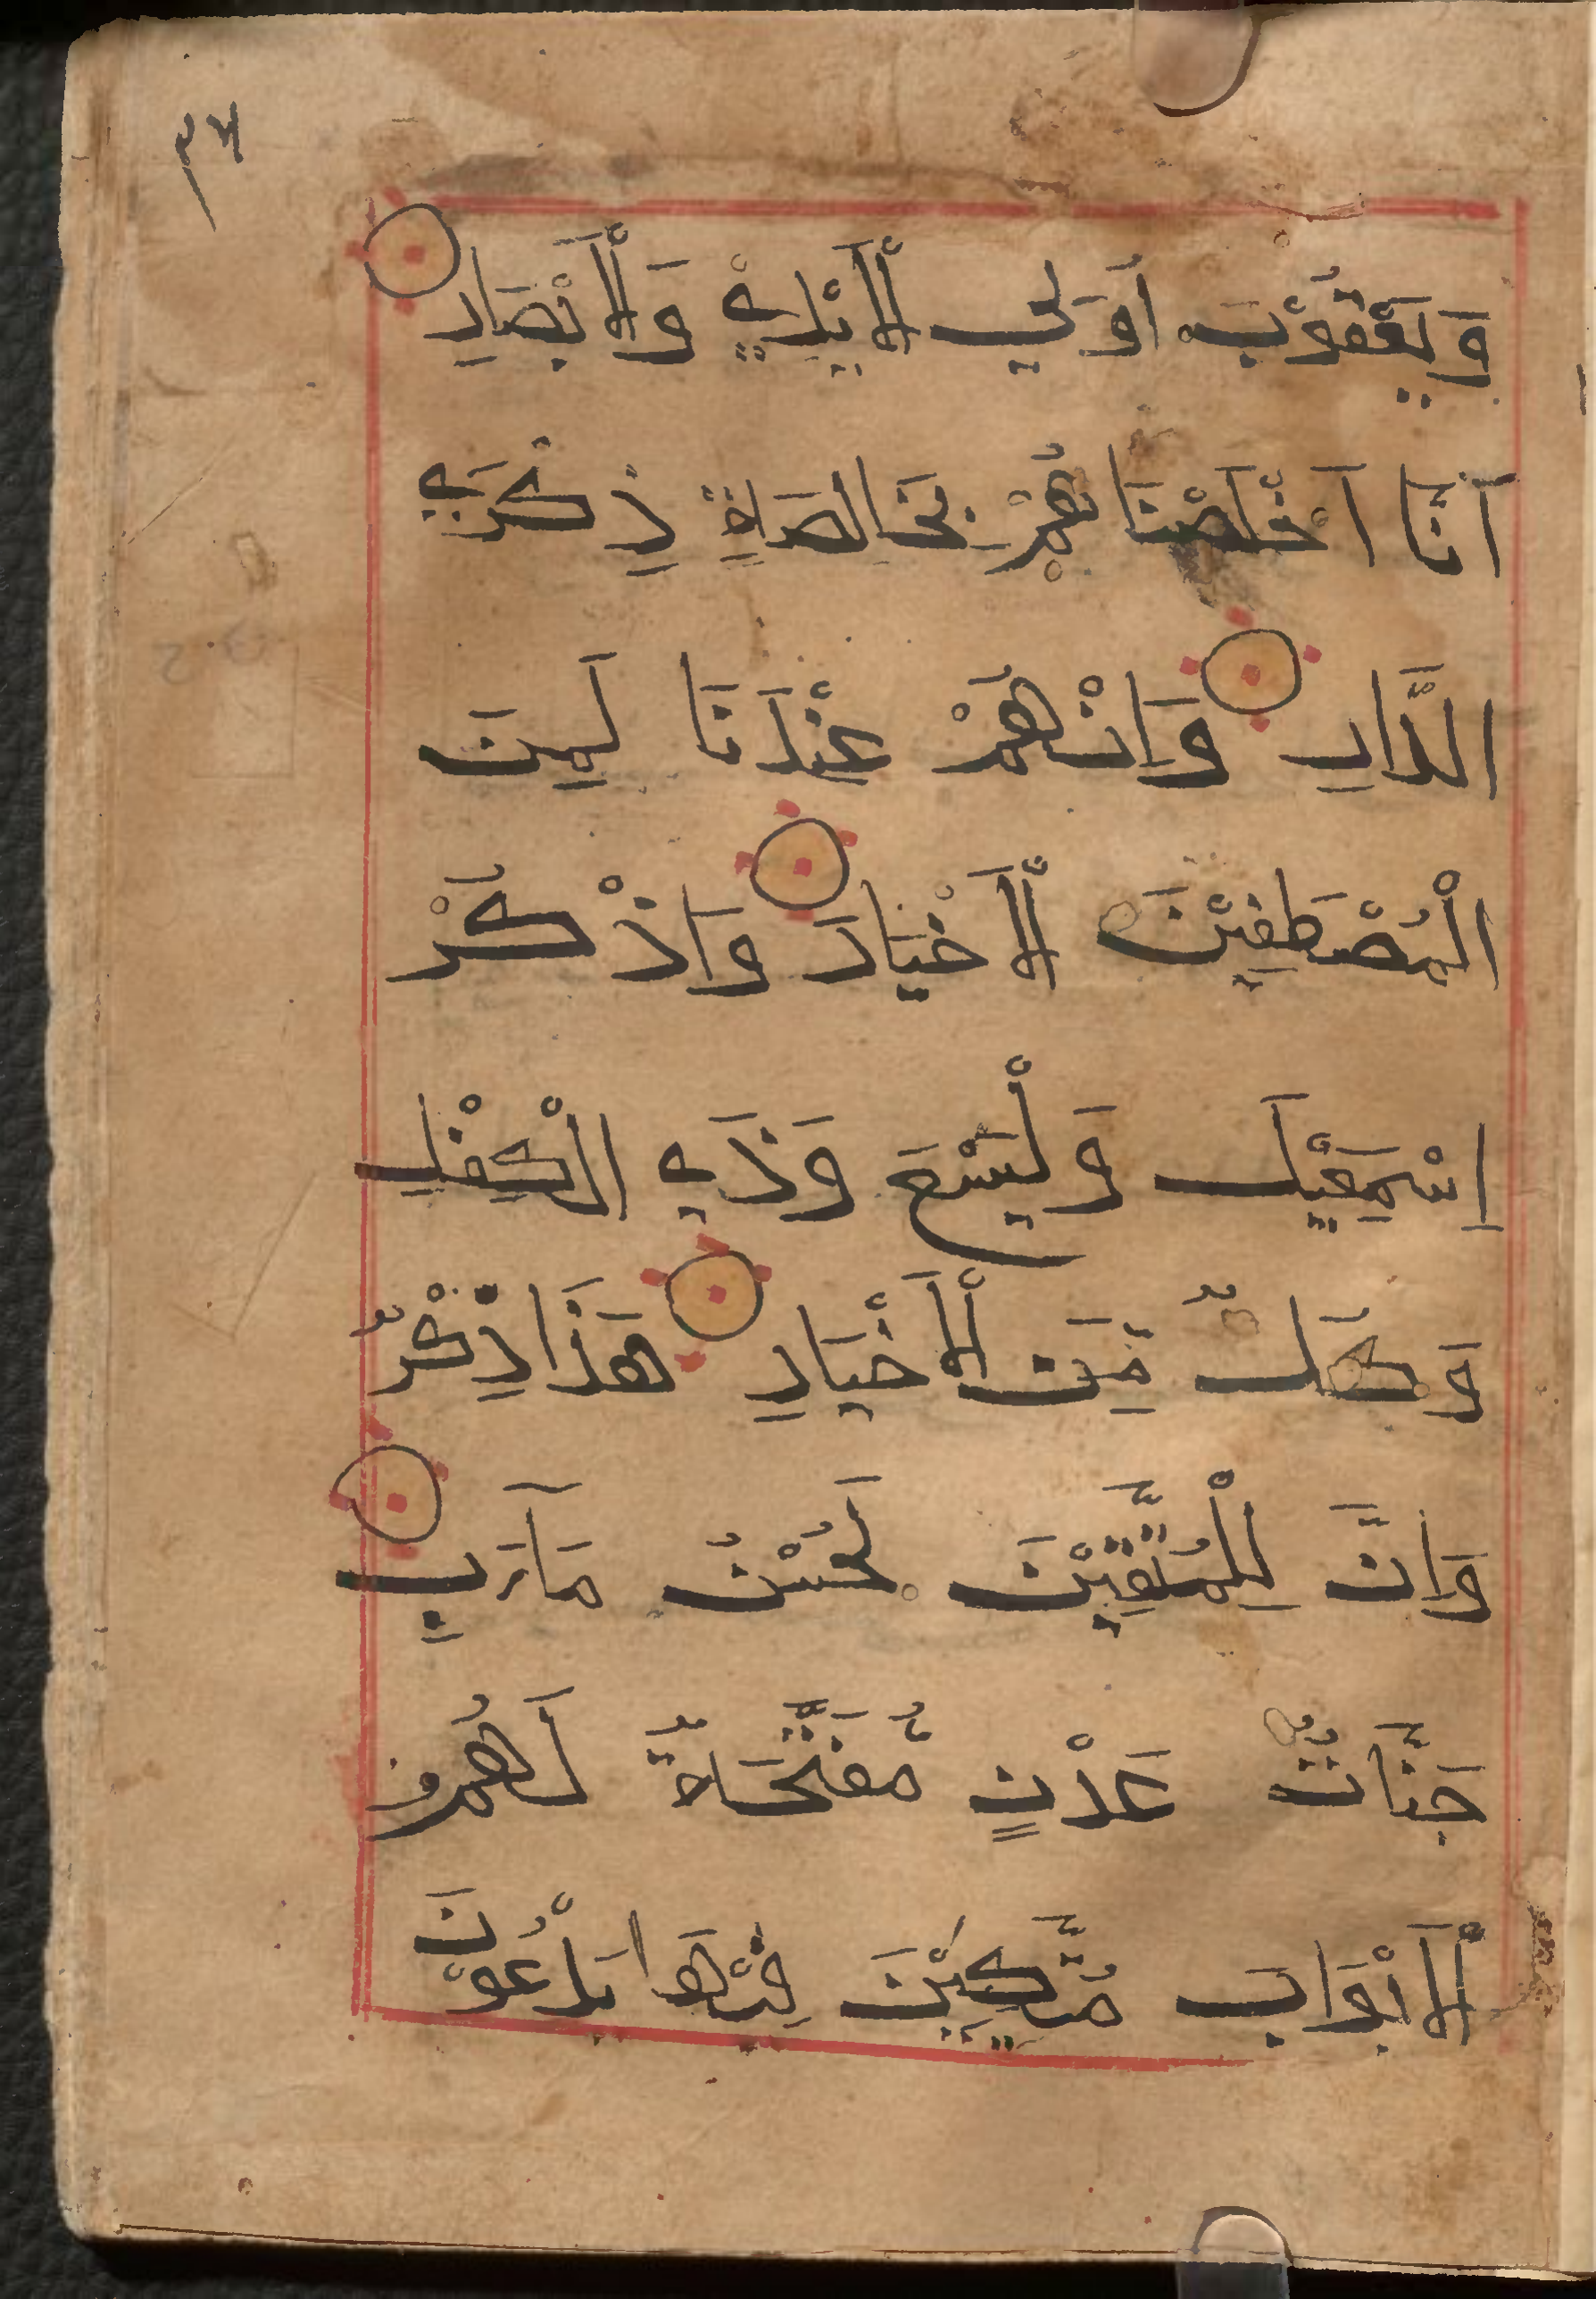 ٣٤
وَيَعْقُوْبَ اُوَلِي الْاَيْدِيْ وَالْاَبْصَارِ
اَنَّا اَخْلَصْنَا هُمْ بِخَالِصَةٍ ذِكْرَي
الدَّارِ وَاِنْهُمْ عِنْدَنَا لَمِنَ
الْمُصْطَفِيْنَ الْاَخْيَارَ وَاذْكُرْ
اِسْمَعِيْلَ وَلْيَسَعَ وَذَي الْكِفْلِ
وَكُلٌّ مِّنَ الْاَخْيَارِ هَذَا ذِكْرٌ
وَاِنَّ لِلْمُتَّقِيْنَ لَحُسْنُ مَآَبٍ
جَنَّاتٌ عَدْنٍ مُّفَتَّحَةٌ لَهُمُ
الْاَبْوَابَ مُتَّكِيْنَ فِيْهَا يَدْعُوْنَ